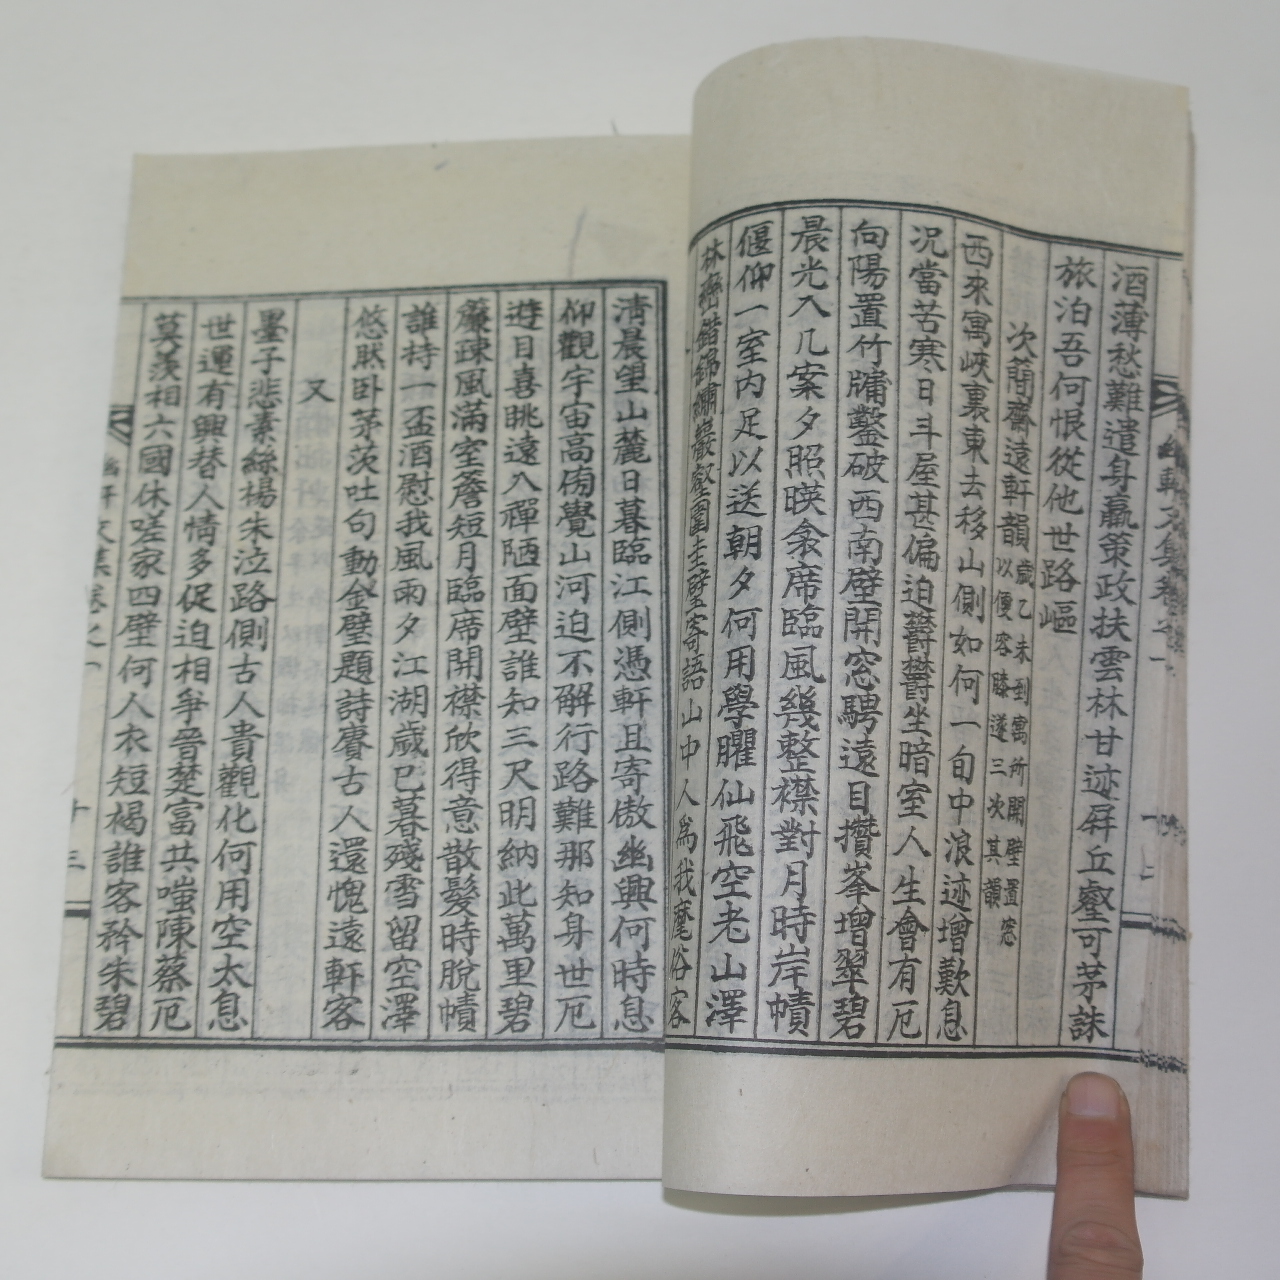 酒薄愁難遣身羸策政扶雲林甘迹屛丘壑可茅誅
旅泊吾何恨從他世路嶇
次簡齋遠軒韻歲乙未到寓所開壁置窓
以便容膝遂三次其韻
西來寓峽裏東去移山側如何一旬中浪迹增歎息
况當苦寒日斗屋甚偏迫鬱鬱坐暗室人生會有厄
向陽置竹牖鑿破西南壁開窓騁遠目攢峯增翠碧
晨光入几案夕照暎衾席臨風幾整襟對月時岸幘
偃仰一室內足以送朝夕何用學臞仙飛空老山澤
林巒錯錦繡巖壑圍圭璧寄語山中人爲我麾俗客
淸晨望山麓日暮臨江側憑軒且寄傲幽興何時息
仰觀宇宙高俯覺山河迫不解行路難那知身世厄
遊目喜眺遠入禪陋面壁誰知三尺明納此萬里碧
簾疎風滿室簷短月臨席開襟欣得意散髮時脫幘
誰持一盃酒慰我風雨夕江湖歲已暮殘雪留空澤
悠然卧茅茨吐句動金璧題詩賡古人還愧遠軒客
又
墨子悲素絲楊朱泣路側古人貴觀化何用空太息
世運有興替人情多促迫相爭晉楚富共嗤陳蔡厄
莫羨相六國休嗟家四壁何人衣短褐誰客矜朱碧
幽軒文集卷之一
十三